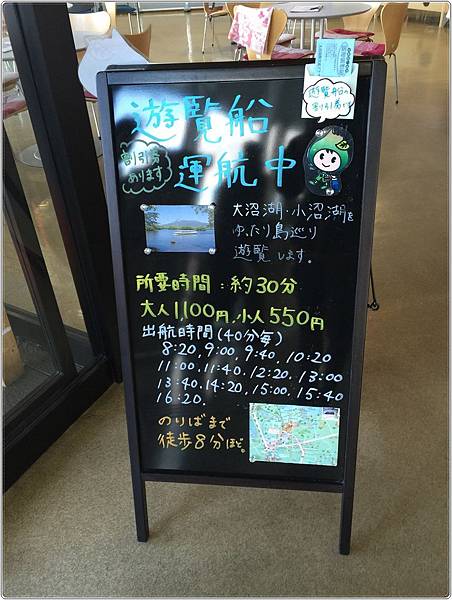 遊覧船の
割引券です
遊覧船
運航中
割引券
あります
大沼湖・小沼湖を
ゆったり島巡り
遊覧します。
所要時間：約30分
大人1,100円、小人550円
出航時間(40分毎)
8:20, 9:00, 9:40, 10:20
11:00, 11:40, 12:20, 13:00
13:40, 14:20, 15:00, 15:40
16:20.
のりばまで
徒歩8分ほど。